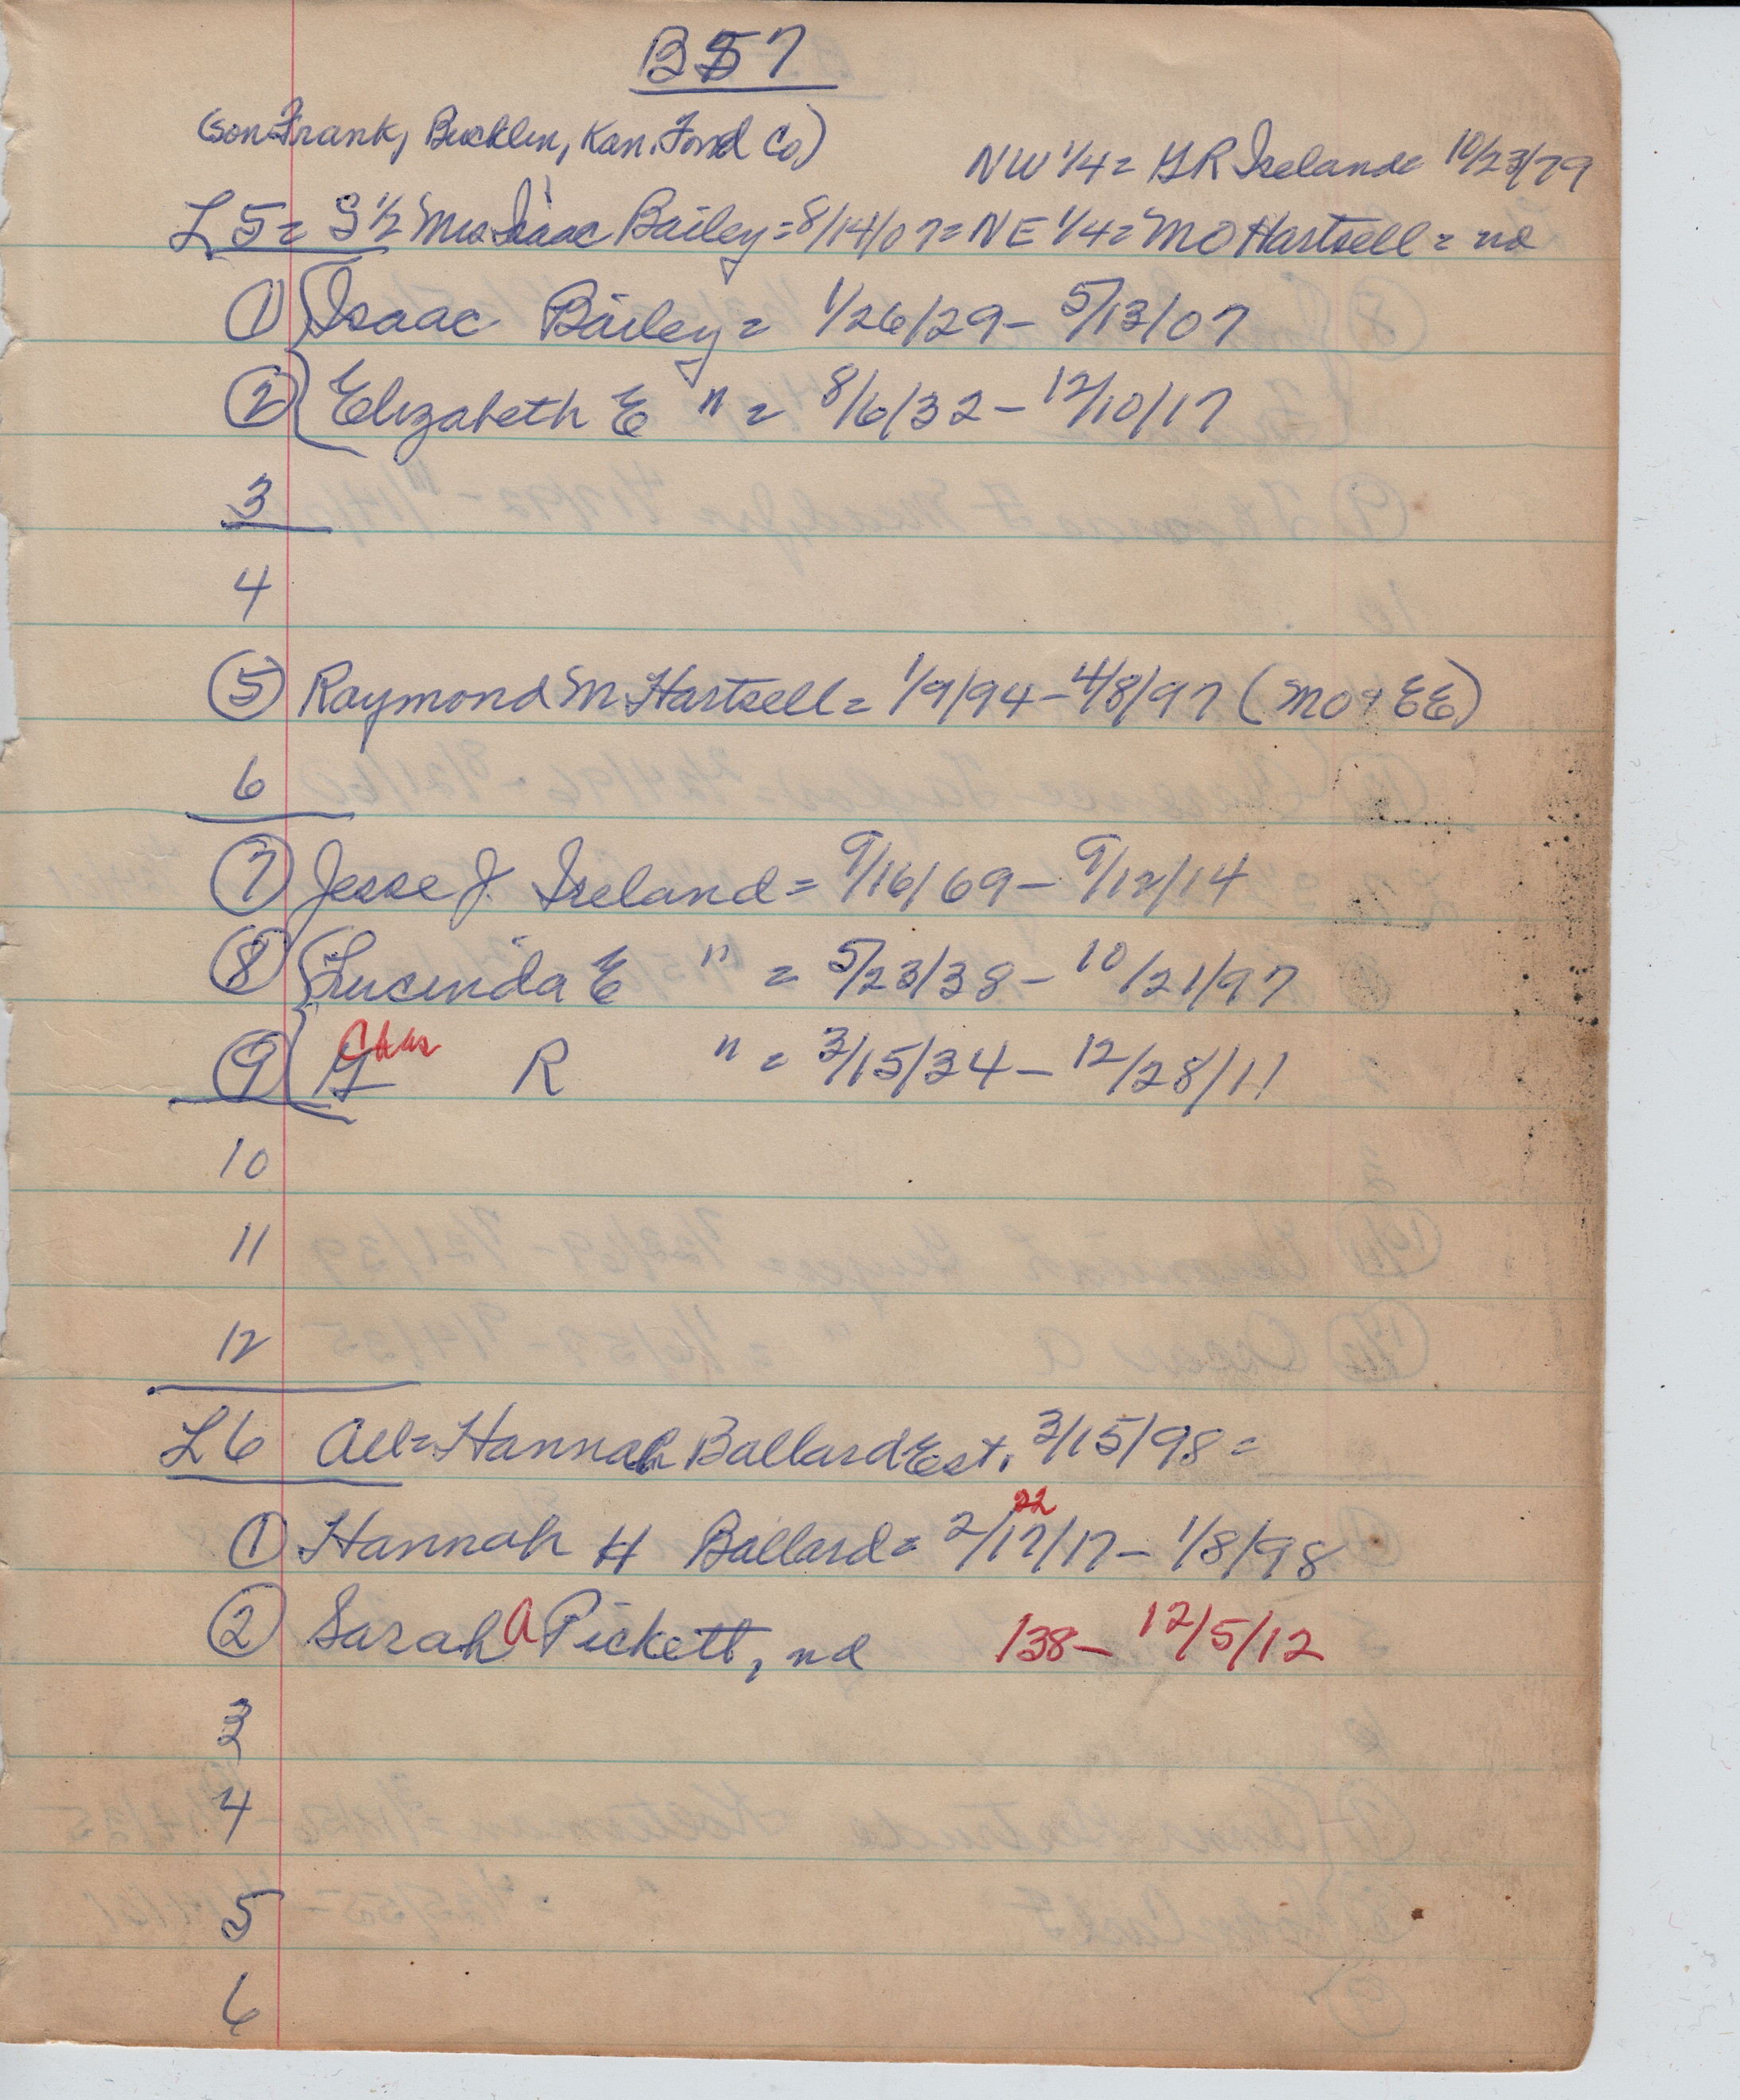 B57
(son Frank, Bucklin, Kan. Ford Co)
NW 1/4 = GR Ireland = 10/23/79
L 5 = S 1/2 Mrs Isaac Bailey = 8/14/07 = NE 1/4 = MO Hartsell = nd
1 Isaac Bailey = 1/26/29 - 5/13/07
2 Elizabeth E " = 8/6/32 - 12/10/17
3
4
5 Raymond M Hartsell = 1/9/94 - 4/8/97 (MO + EE)
6
7 Jesse J. Ireland = 9/16/69 - 9/12/14
8 Lucinda E " = 5/23/38 - 10/21/97
Chas
9 G R " = 3/15/34 - 12/28/11
10
11
12
L 6 All = Hannah Ballard Est. 3/15/98 =
22
1 Hannah H Ballard = 2/12/17 - 1/8/98
2 Sarah A Pickett, nd 138 - 12/5/12
3
4
5
6